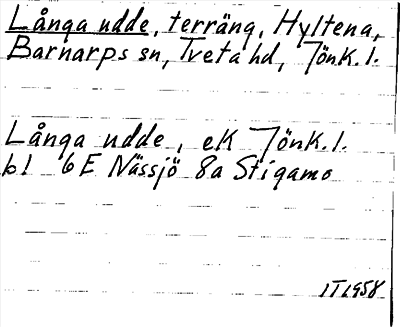 Långa udde, terräng, Hyltena,
Barnarps sn, Tveta hd, Jönk. l.
Långa udde, ek Jönk. l.
bl 6E Nässjö 8a Stigamo
IT 1958